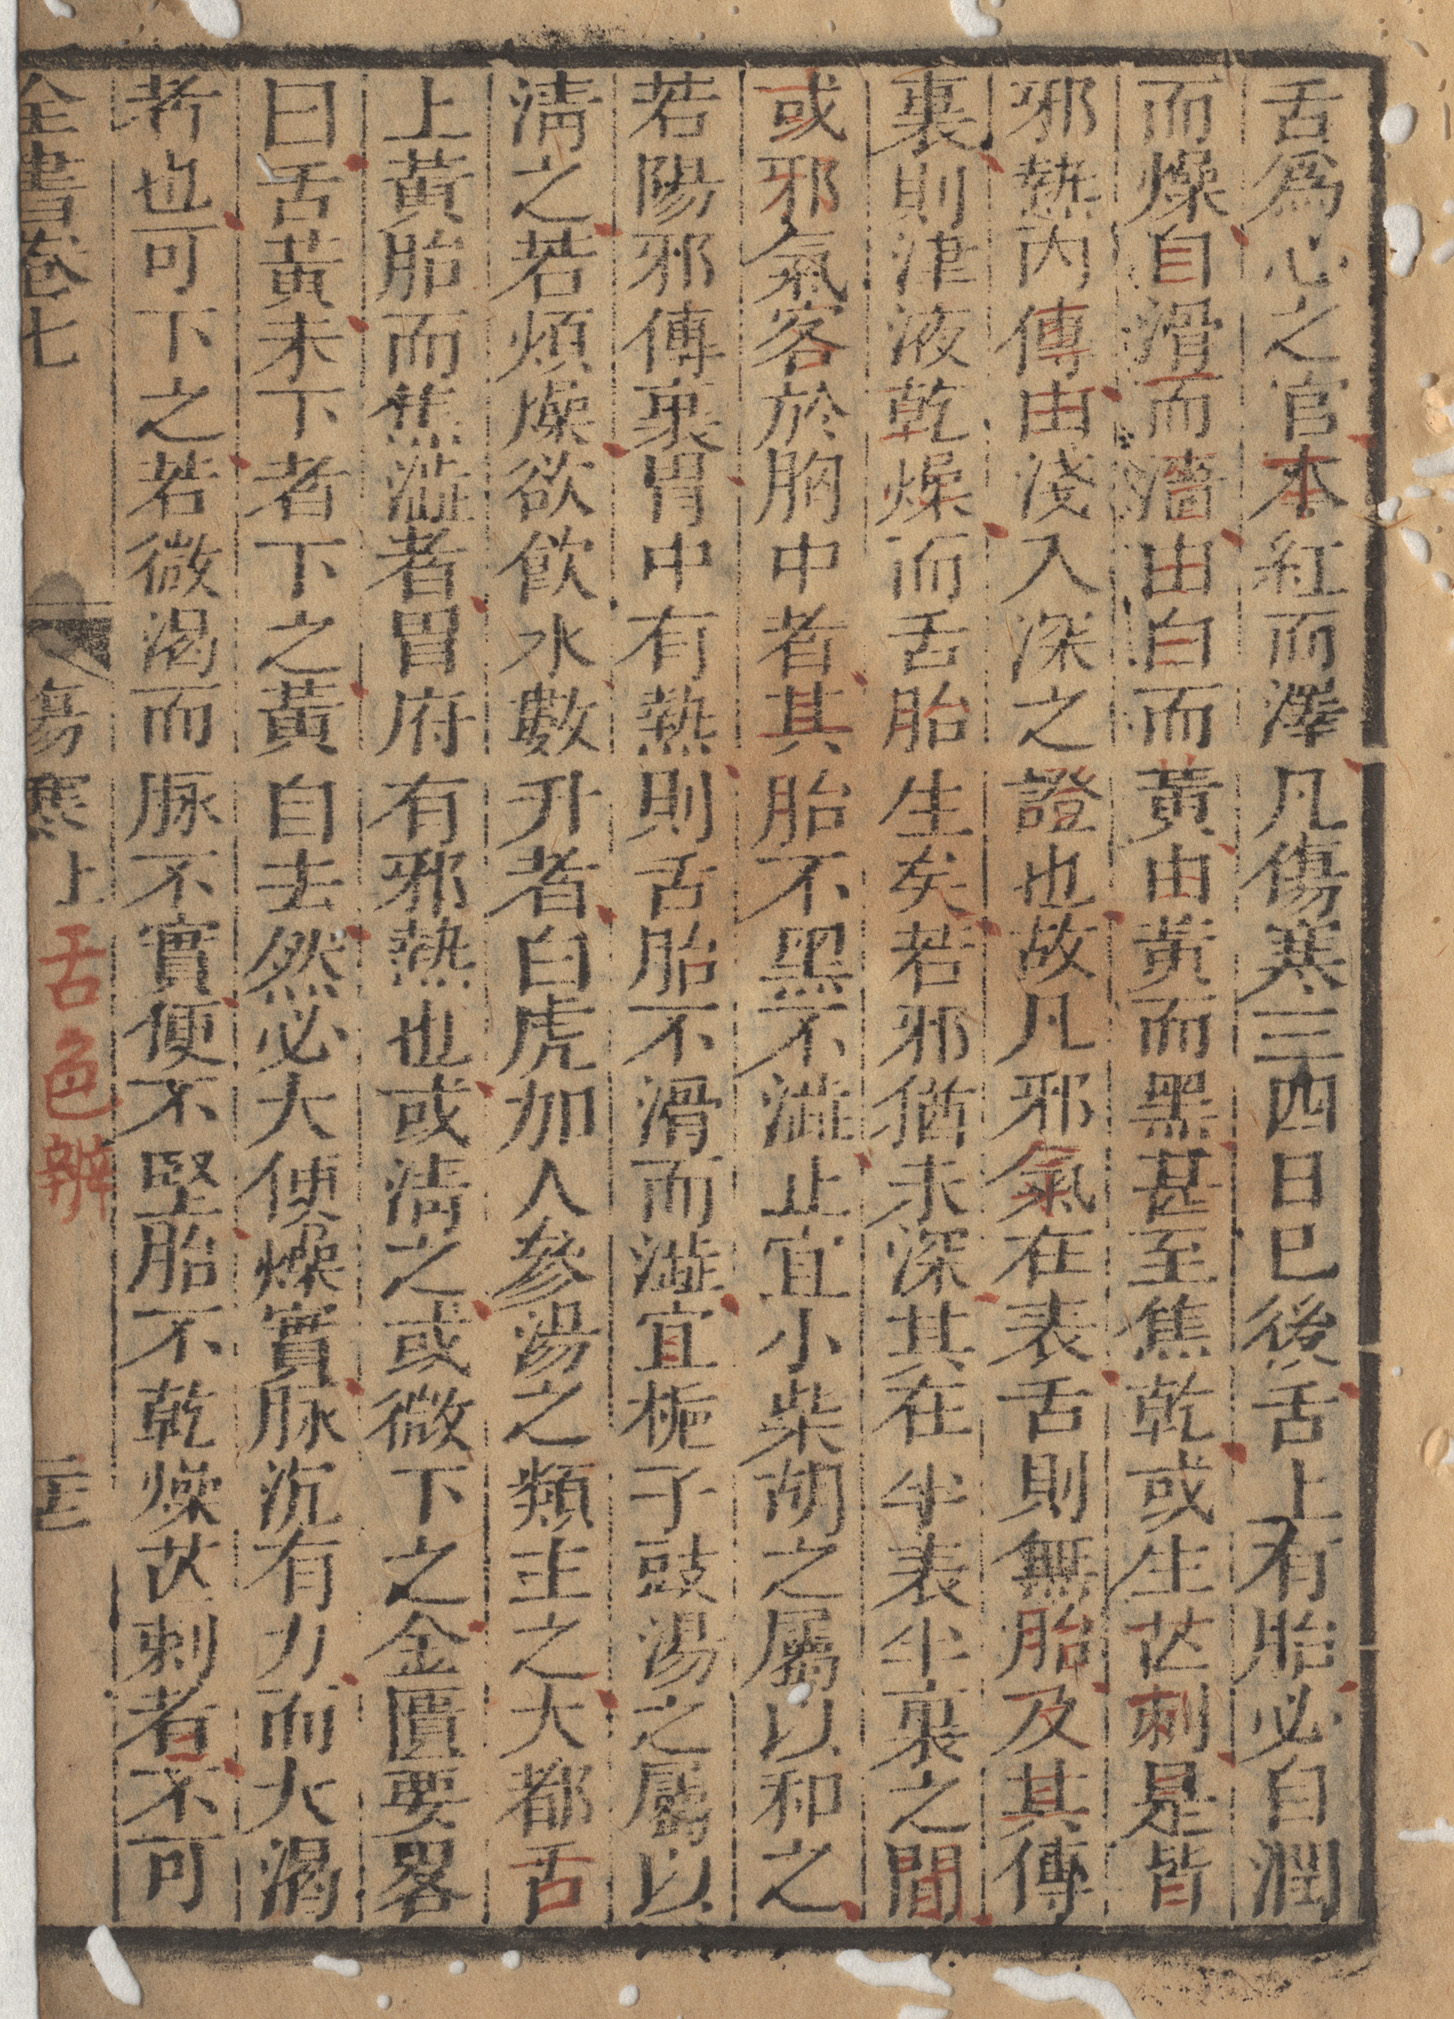 舌為心之官本紅而澤凡傷寒三四日已後舌上有胎必自潤
而燥自滑而濇由白而黃由黃而黑甚至焦乾或生芒刺是皆
邪熱內傳由淺入深之證也故凡邪氣在表舌則無胎及其傳
裏則津液乾燥而舌胎生矣若邪猶未深其在半表半裏之間
或邪氣客於胸中者其胎不黑不澁止宜小柴胡之屬以和之
若陽邪傳裏胃中有熱則舌胎不滑而澁宜梔子豉湯之屬以
淸之若煩燥欲飲水數升者白虎加人參湯之類主之大都舌
上黃胎而焦澁者胃府有邪熱也或淸之或微下之金匱要畧
曰舌黃未下者下之黃自去然必大便燥實脉沉有力而大渴
者也可下之若微渴而脉不實便不堅胎不乾燥芒刺者不可
全書卷七 傷寒上 舌色辨